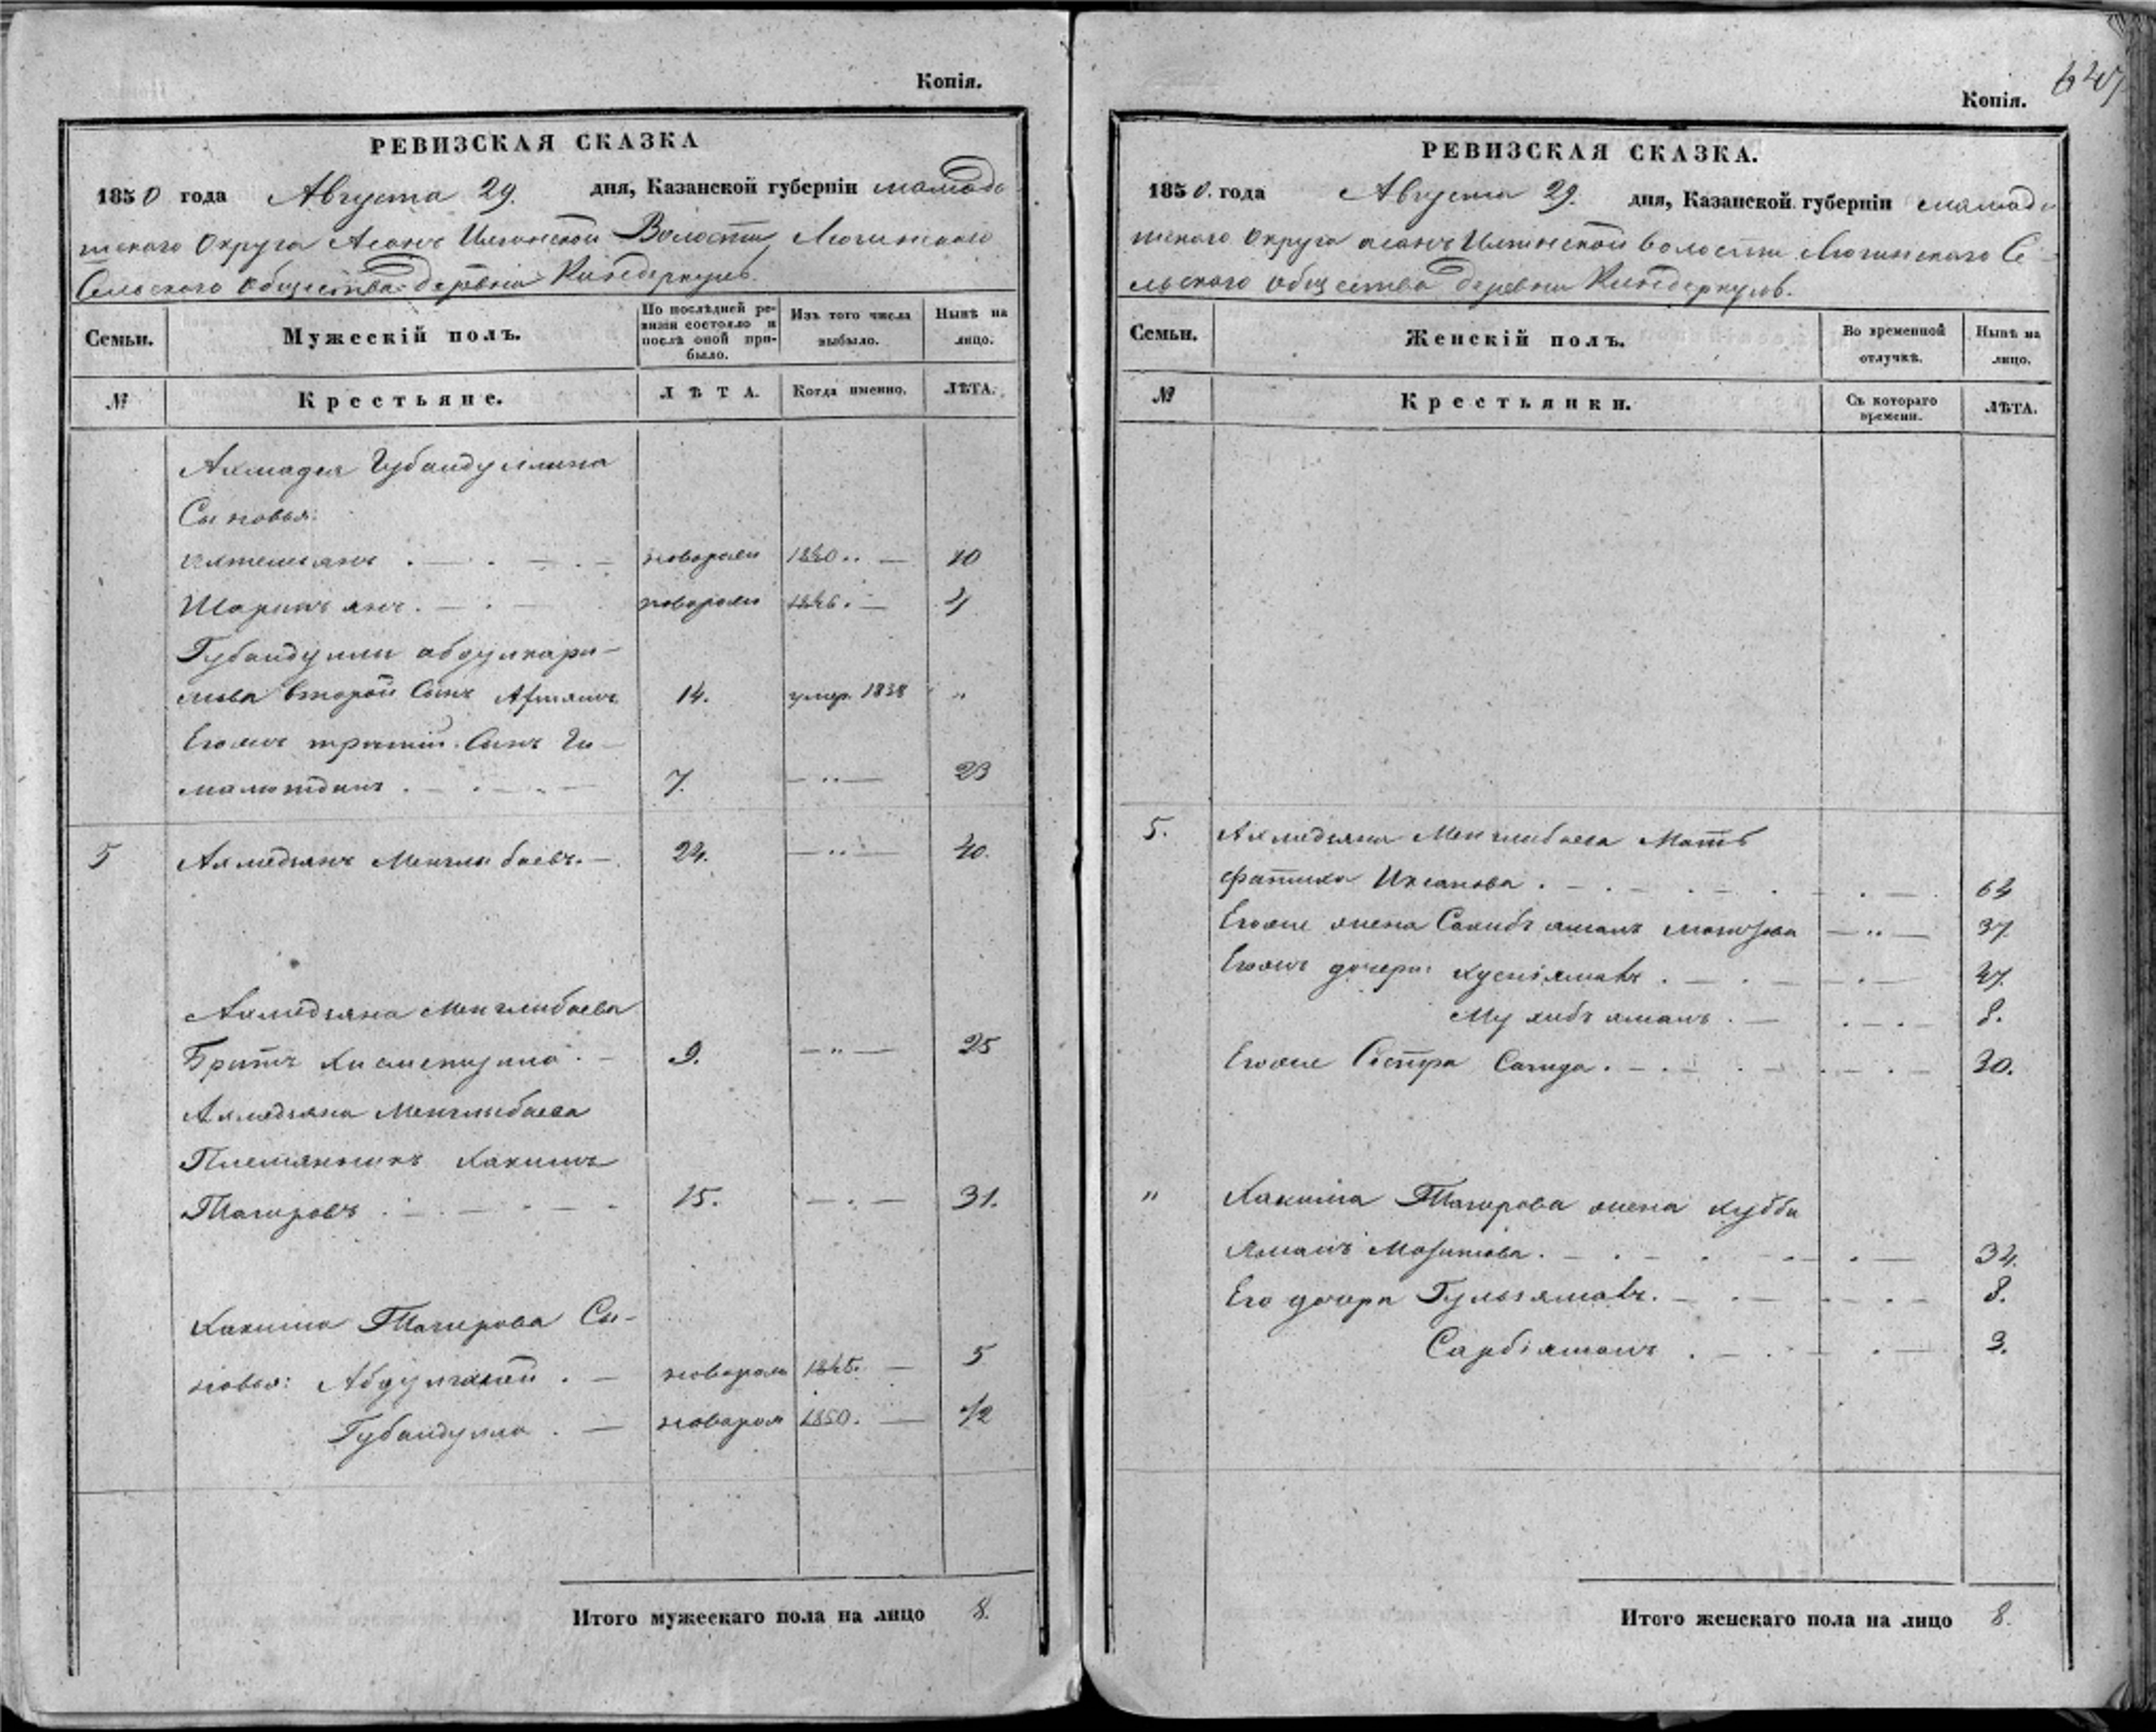 Копія.
РЕВИЗСКАЯ СКАЗКА
1850 года Августа 29. дня, Казанской губерніи мамады
шского округа Асанъ Илгинской Волости Лючинскаго
Сельского общества деревни Киндеркуль.
Семьи.
Мужескій полъ.
По послѣдней ре-
визіи состояло и
послѣ оной при-
было.
Изъ того числа
выбыло.
Нынѣ на
лицо.
№
Крестьяне.
ЛѢТА.
Когда именно.
ЛѢТА.
Ахмадея Губайдуллина
Сыновья:
новорож 1840 10
Шарипъ янъ новорож 1846. 4
Губайдулли абдулкари-
мова второй Сынъ 14. умер. 1838 "
Егожъ третій Сынъ Ги-
малютдинъ 7. " 23
5 Ахмедьянъ Менглибаевъ. 24. " 40.
Ахмедьяна Менглибаева
Братъ Хисметулла 9. " 25
Ахмедьяна Менглибаева
Племянникъ Хакимъ
Тагировъ 15. 31.
Хакима Тагирова Сы-
новья: Абдулганей новорож 1845. 5
Губайдулла новорож 1850. 1/2
Итого мужескаго пола на лицо 8.
647
Копія.
РЕВИЗСКАЯ СКАЗКА.
1850. года Августа 29. дня, Казанской губерніи мамады
шского округа асанъ Илгинской волости Лючинского Се
льского общества деревни Киндеркуль.
Семьи.
Женскій полъ.
Во временной
отлучкѣ.
Нынѣ на
лицо.
№
Крестьянки.
Съ котораго
времени.
ЛѢТА.
5. Ахмедьяна Менглибаева Мать
Фатиха Ихсанова 64
Егоже жена Сахибъ ямалъ 37
Егожъ дочери: Хуснiямалъ
Мухибъ ямалъ 8.
Егоже Сестра Сагида 30.
" Хакима Тагирова жена Хубби
Ямалъ 34.
Его дочери Гульзямалъ. 8.
Сарбiямалъ 3.
Итого женскаго пола на лицо 8.